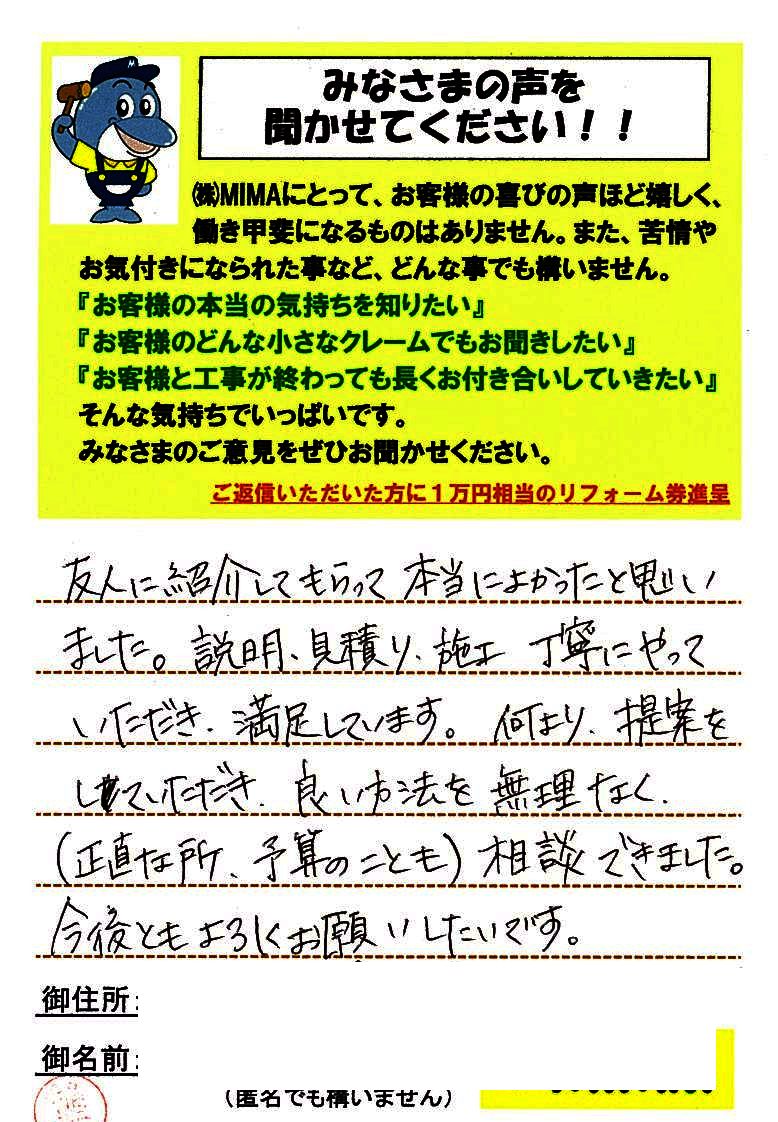 みなさまの声を
聞かせてください！！
㈱MIMAにとって、お客様の喜びの声ほど嬉しく、
働き甲斐になるものはありません。また、苦情や
お気付きになられた事など、どんな事でも構いません。
『お客様の本当の気持ちを知りたい』
『お客様のどんな小さなクレームでもお聞きしたい』
『お客様と工事が終わっても長くお付き合いしていきたい』
そんな気持ちでいっぱいです。
みなさまのご意見をぜひお聞かせください。
ご返信いただいた方に１万円相当のリフォーム券進呈
友人に紹介してもらって本当によかったと思い
ました。説明、見積り、施工 丁寧にやって
いただき、満足しています。何より、提案を
していただき、良い方法を無理なく、
(正直な所、予算のことも)相談できました。
今後ともよろしくお願いしたいです。
御住所:
御名前:
（匿名でも構いません）